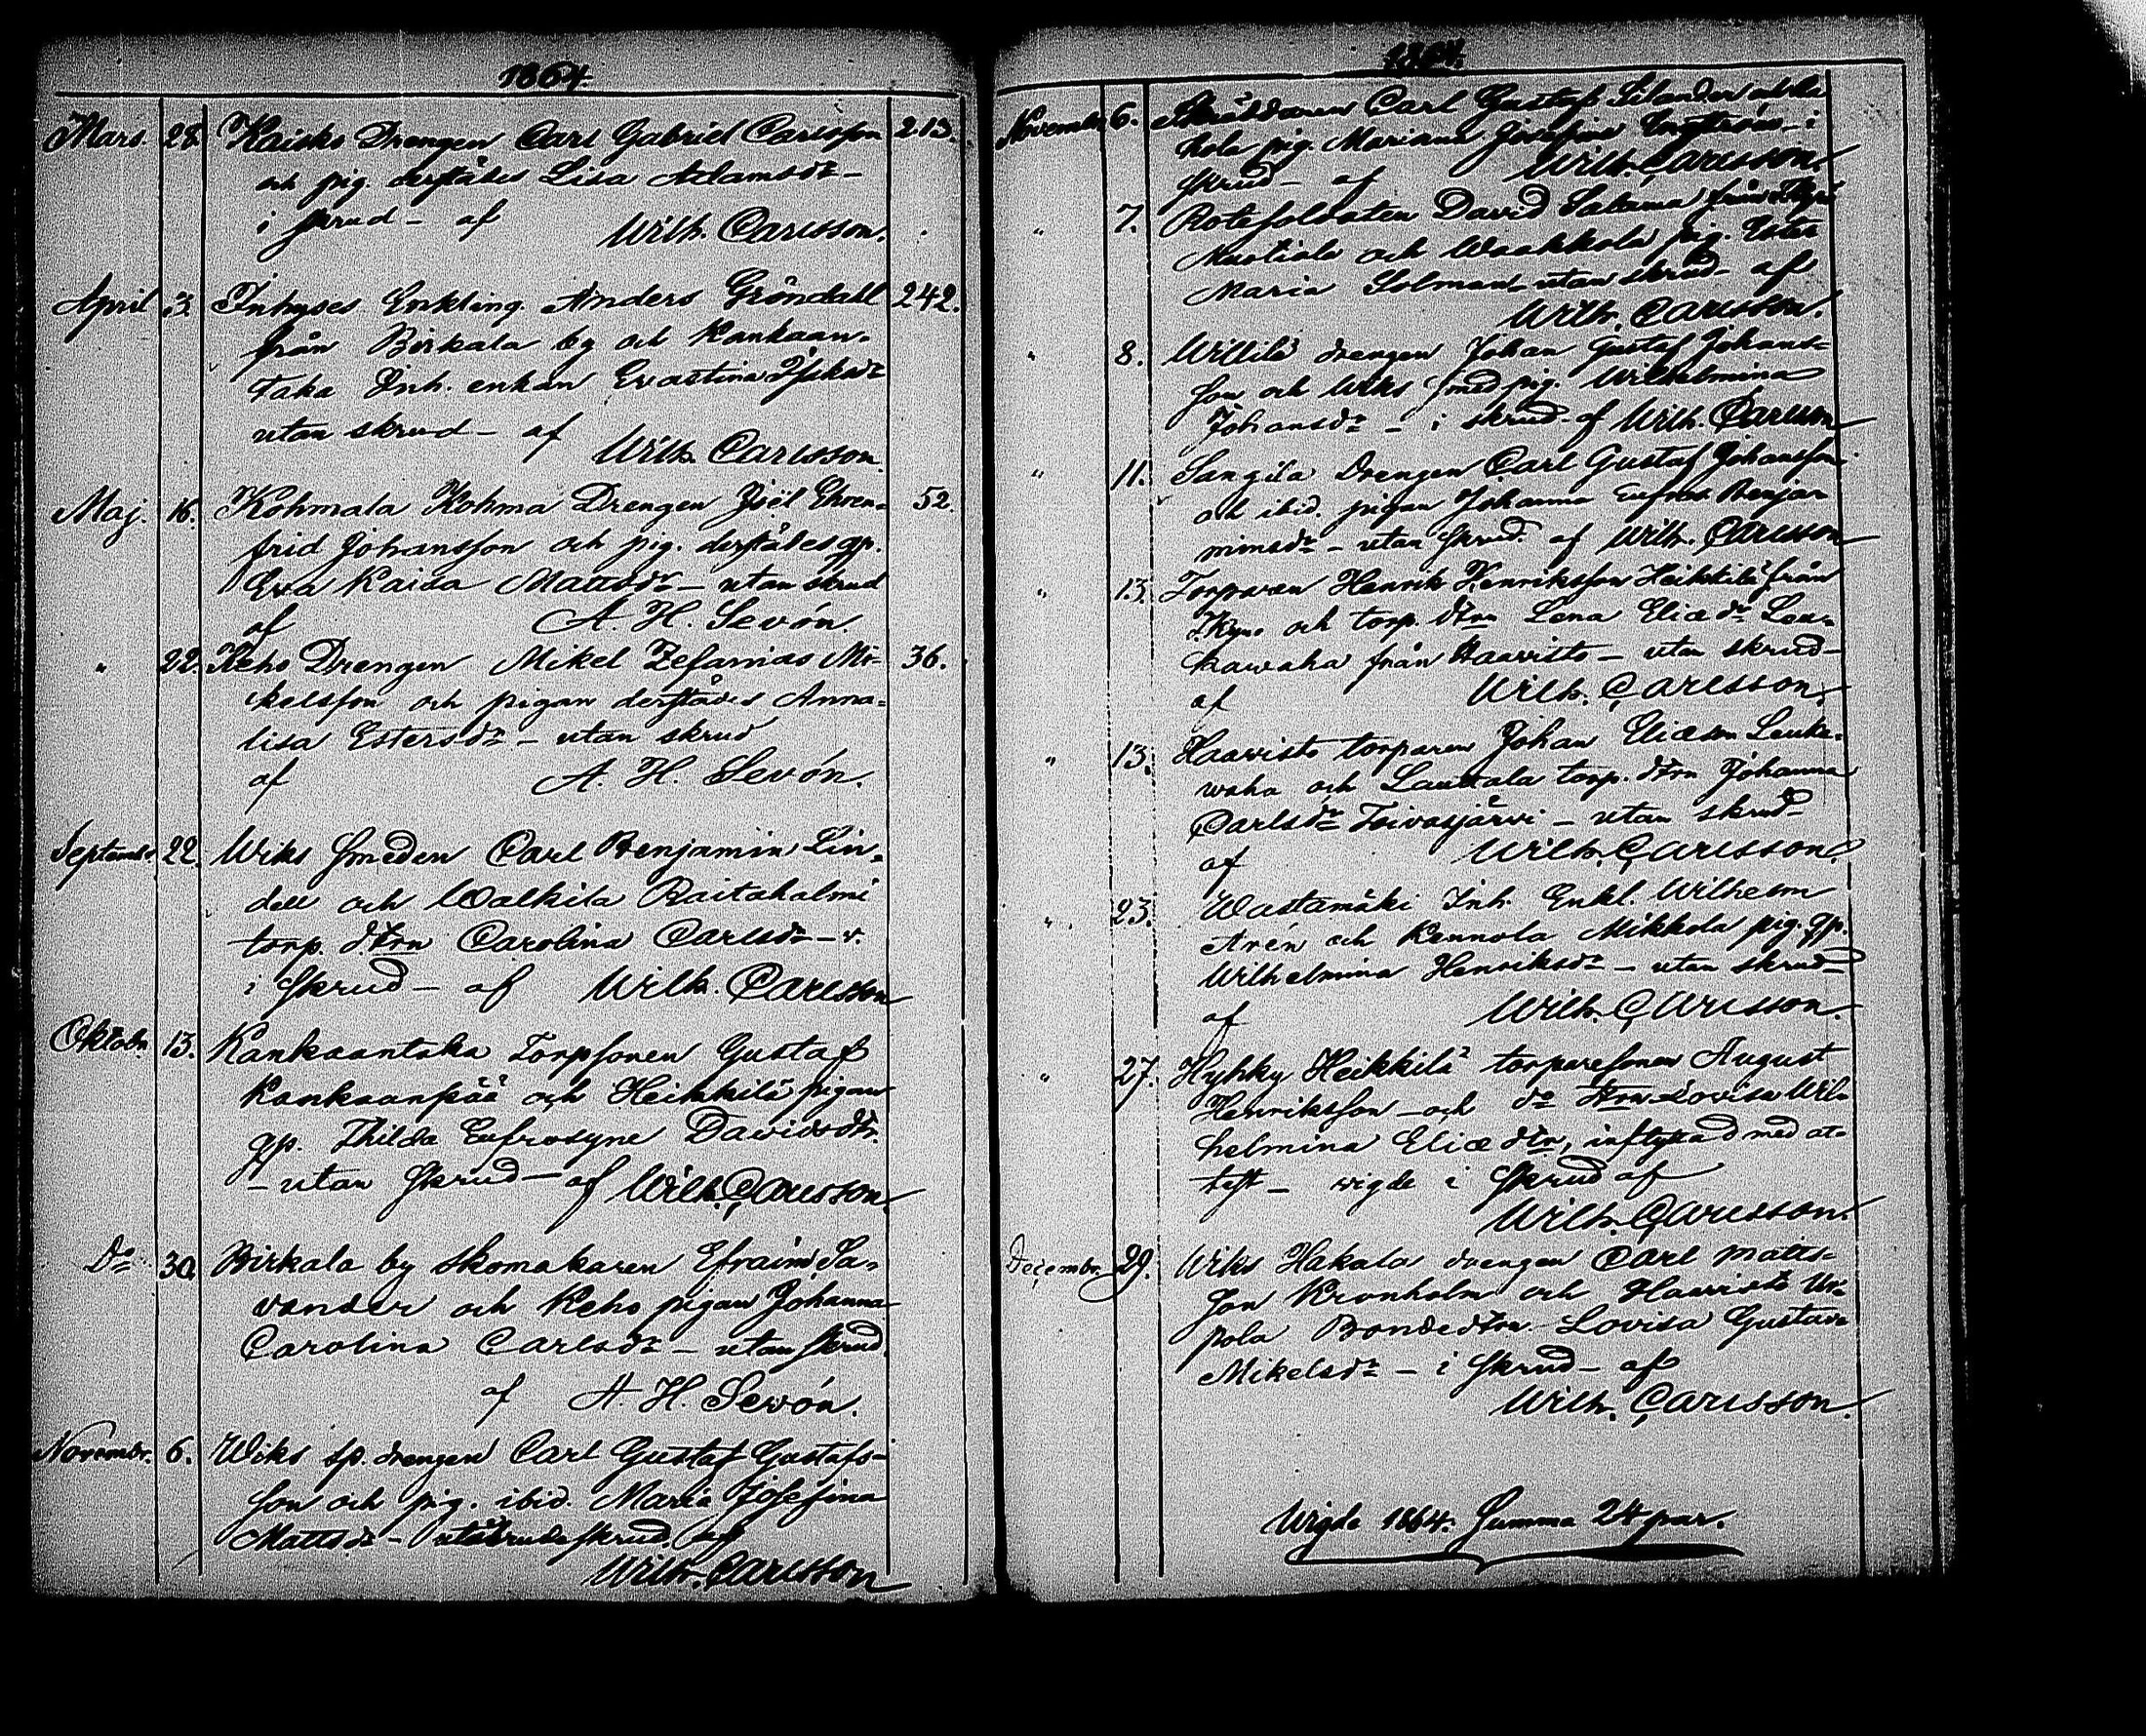 1864.
Mars. 28. Kaisko Drengen Carl Gabriel Carlsson 213.
och pig. derstädes Lisa Adamsdr –
i skrud – af Wilh. Carlsson.
April 3. Inhyses Enkling. Anders Gröndall 242.
från Birkala by och Kankaan-
taka Inh. enkan Evastina
utan skrud – af
Wilh. Carlsson.
Maj. 16. Kohmala Kohma Drengen Joël Ehren- 52.
frid Johansson och pig. derstädes gp.
Eva Kaisa Mattsdr – utan skrud
af A. H. Sevón.
" 22. Keho Drengen Mikel Zefanias Mi- 36.
kelsson och pigan derstädes Anna-
lisa Estersdr – utan skrud
af A. H. Sevón.
Septembr. 22. Wiks Smeden Carl Benjamin Lin-
dell och Walkila Raitahalmi
torp. dtrn Carolina Carlsdr – v.
i Skrud – af Wilh. Carlsson
Oktobr. 13. Kankaantaka Torpsonen Gustaf
Kankaanpää och Heikkilä pigan
gp. Thilda Eufrosyne Davidsdr.
– utan Skrud – af Wilh. Carlsson.
Do 30. Birkala by skomakaren Efraim Sa-
vander och Keho pigan Johanna
Carolina Carlsdr – utan skrud.
af A. H. Sevón.
Novembr. 6. Wiks sp. drengen Carl Gustaf Gustafs-
son och pig. ibid. Maria Josefina
Mattsdr – skrud. af
Wilh. Carlsson
1864.
Novembr. 6. Carl Gustaf
pig. Mariana Josefina – i
skrud – af Wilh. Carlsson.
" 7. Rotesoldaten David Salama från
och Waakkola pig. Ester
Maria – utan skrud – af
Wilh. Carlsson.
" 8. Willilä drengen Johan Gustaf Johans-
son och Wiks smed pig. Wilhelmina
Johansdr – i skrud – af Wilh. Carlsson
" 11. Sangila Drengen Carl Gustaf Johansson
och ibid. pigan Johanna Eufros. Benja-
minsdr – utan skrud. af Wilh. Carlsson
" 13. Torparen Henrik Henriksson Heikkilä från
och torp. dtrn Lena Eliædr Leu-
kawaha från Haavisto – utan skrud –
af Wilh. Carlsson.
" 13. Haavisto torparen Johan Eliæson Leuka-
waha och Lauttala torp. dtrn Johanna
Carlsdr Toivosjärvi – utan skrud –
af Wilh. Carlsson.
" 23. Wastamäki Inh. Enkl. Wilhelm
Arén och Kennola Mikkola pig. gp.
Wilhelmina Henriksdr – utan skrud –
af Wilh. Carlsson.
" 27. Hyhky Heikkilä torparesonen August
Henriksson – och do dtrn Lovisa Wil-
helmina Eliædtr, inflyttad med at-
test – vigde i Skrud af
Wilh. Carlsson.
Decembr. 29. Wiks Hakala drengen Carl Matts-
son Kronholm och Haavisto Uo-
pola Bondedtrn – Lovisa Gustava
Mikelsdr – i skrud – af
Wilh. Carlsson.
Wigde 1864. Summa 24 par.